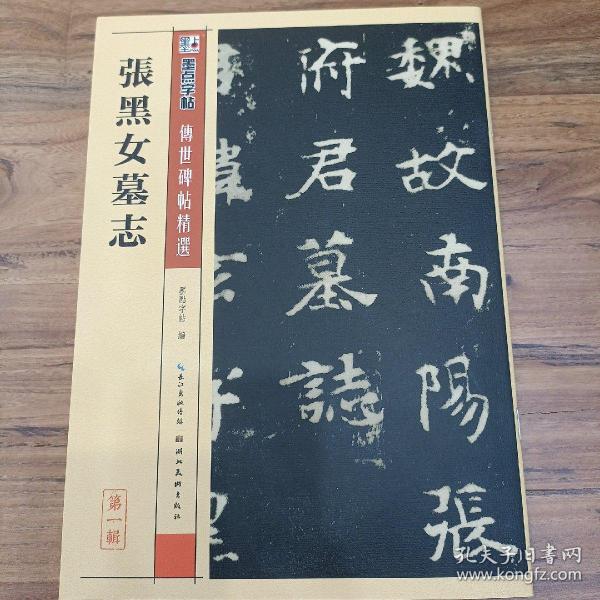 張黑女墓志
墨点字帖
傳世碑帖精選
墨點字帖 編
長江出版傳媒
湖北美術出版社
第一輯
魏故南陽張
府君墓誌
諱玄字
孔夫子旧书网
www.kongfz.com